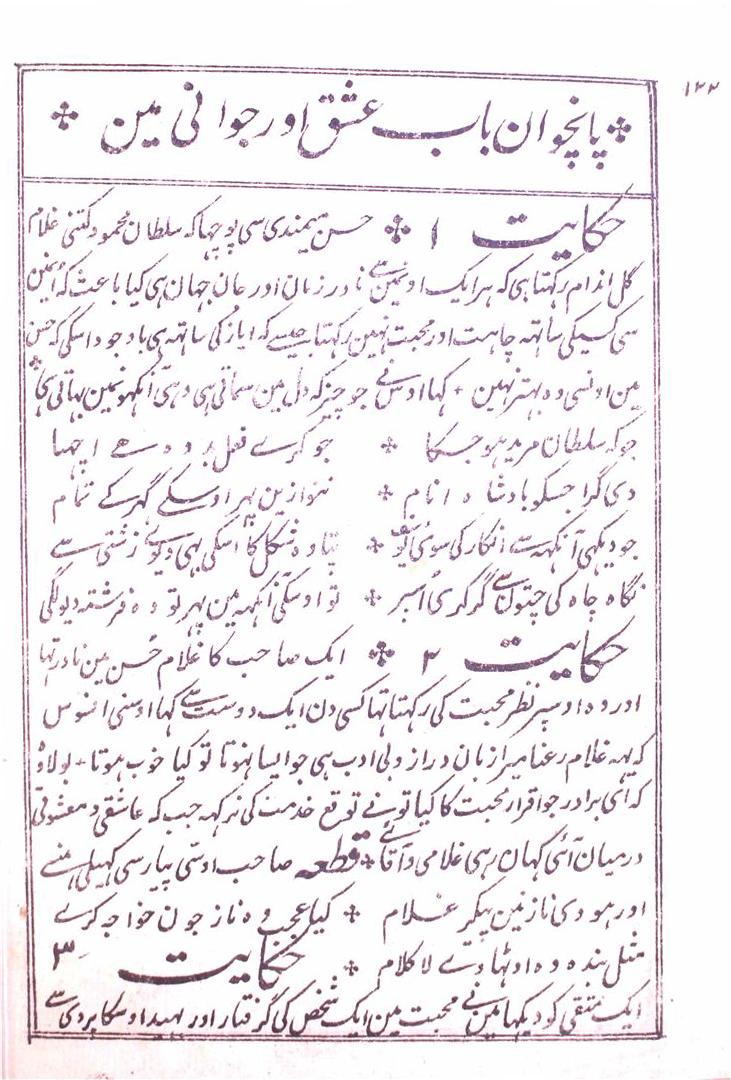 ۱۲۲
پانچوان باب عشق اور جوانی مین
حکایت ۱ حسن میمندی سی پوچہا کہ سلطان محمود کتنی غلام
گل اندام رکہتا ہی کہ ہر ایک اونمین سے نادر زمان اور جان جہان ہی کیا باعث کہ اُنمین
سی کسیکی ساتہہ چاہت اور محبت نہین رکہتا جیسے کہ ایاز کی ساتہہ ہی باوجود اسکی کہ حسن
مین اونسی وہ بہتر نہین + کہا اوس نے جو چیز کہ دل مین سماتی ہی وہی آنکہونمین بہاتی ہی
جو کہ سلطان مرید ہو جسکا جو کرے فعل بد وہ ہے اچہا
دی گرا جسکو بادشاہ انام نہ نوازین پہر اوسے گہر کے تمام
جو دیکہی آنکہہ سے انکار کی سوی یوسف بتاوہ شکل کا اسکی بہی دیوے زشتی سے
نگاہ چاہ کی چتون سے گر کری اُسپر تو اوسکی آنکہہ مین پہر تو وہ فرشتہ دیو لگی
حکایت ۲ ایک صاحب کا غلام حُسن مین نادر تہا
اور وہ اوسپر نظر محبت کی رکہتا تہا کسی دن ایک دوست سے کہا اوسنی افسوس
کہ یہہ غلام رعنا میرا زبان دراز و بی ادب ہی جو ایسا نہوتا تو کیا خوب ہوتا + بولا وہ
کہ ای برادر جو اقرار محبت کا کیا تونے توقع خدمت کی نرکہہ جب کہ عاشقی و معشوقی
درمیان آئی کہان رہی غلامی و آقائی قطعہ صاحب اوسی پیار سی کہیلی ہنسے
اور ہووی نازنین پیکر غلام کیا عجب وہ ناز جون خواجہ کرے
مثل بندہ وہ اوٹہاوے لا کلام حکایت ۳
ایک متقی کو دیکہا مین نے محبت مین ایک شخص کی گرفتار اور بہید اوسکا پردی سے